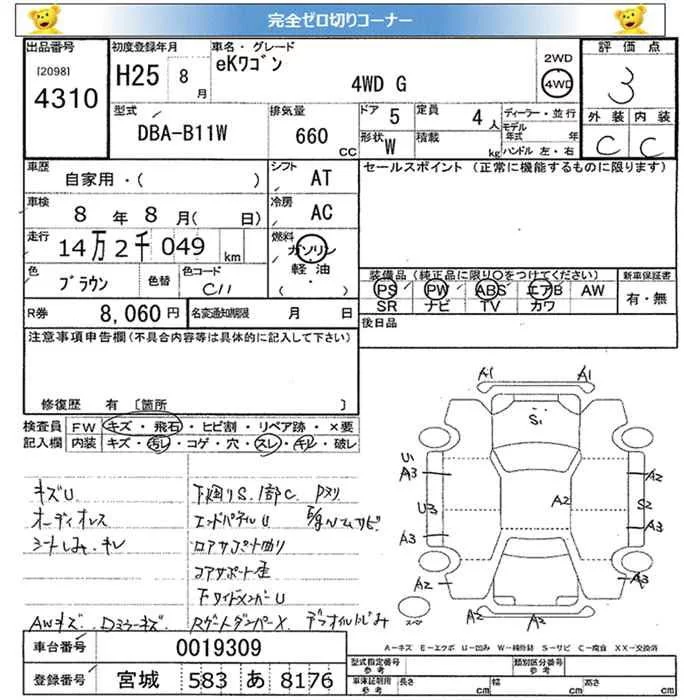 完全ゼロ切りコーナー
出品番号 初度登録年月 車名・グレード 2WD 評価点
[2098] H25 8 月 eKワゴン 4WD G 4WD 3
4310
型式 排気量 ドア 定員 ディーラー・並行 外装 内装
DBA-B11W 660 CC 5 4 人 モデル年式 年
形状 W 積載 kg ハンドル 左・右 C C
車歴 シフト セールスポイント (正常に機能するものに限ります)
自家用・( ) AT
車検 冷房
8 年 8 月( 日) AC
走行 燃料
14万2千049 km ガソリン
軽油
( )
色 色替 色コード 装備品 (純正品に限り〇をつけてください) 新車保証書
ブラウン C11 PS PW ABS エアB AW 有・無
SR ナビ TV カワ
R券 8,060 円 名変通知期限 月 日 後日品
注意事項申告欄(不具合内容等は具体的に記入して下さい)
修復歴 有 [箇所 ]
検査員 FW キズ・飛石・ヒビ割・リペア跡・×要
記入欄 内装 キズ・汚レ・コゲ・穴・スレ・キレ・破レ
キズU 下廻りS.1部C
オーディオレス エンドパネルU
シートしみ・キレ コアサポート曲り
コアサポート歪
下ワイドメンバーU
AWキズ・Dミラーキズ Rゲートダンパー×
A1 A1
S1
U1
A3 A2
A2 S2
U3
A3 A3
A2 A3
A2 A2
スペア
A-キズ E-エクボ U-凹み W-補修跡 S-サビ C-腐食 XX-交換済
車台番号 0019309
登録番号 宮城 583 あ 8176
型式指定番号 類別区分番号
車体証明用参考 長さ cm 幅 cm 高さ cm